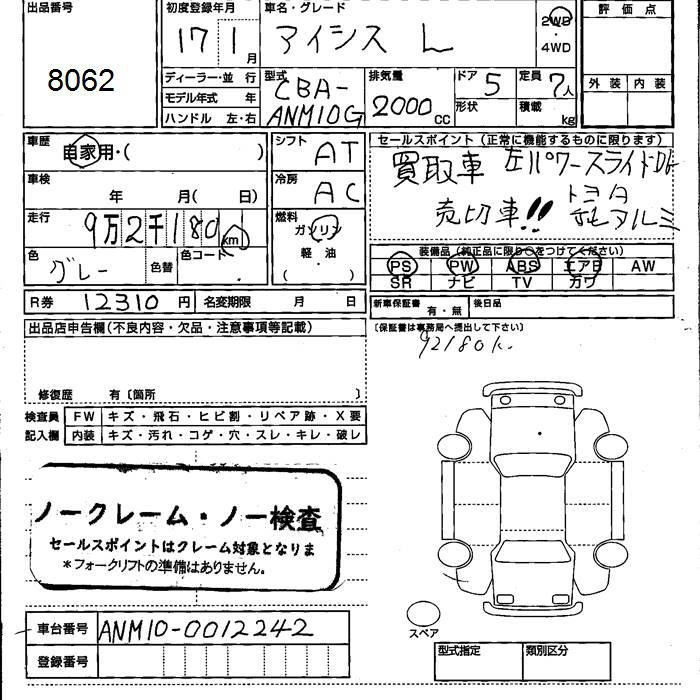 出品番号
8062
初度登録年月
17 1 月
ディーラー・並 行
モデル年式 年
ハンドル 左・右
車名・グレード
アイシス L
2WD
・
4WD
型式
CBA-
ANM10G
排気量
2000 CC
ドア 5
形状
定員 7人
積載 kg
評 価 点
外 装 内 装
車歴
自家用・( )
車検
年 月( 日)
走行
9万2千180 km
色
グレー
色替
色コード
シフト AT
冷房 AC
燃料
ガソリン
軽・油
( )
R券 12310 円 名変期限 月 日
セールスポイント(正常に機能するものに限ります)
買取車 左パワースライドDr
売切車!! トヨタ
純アルミ
装備品(純正品に限り○をつけてください)
PS PW ABS エアB AW
SR ナビ TV カワ
新車保証書 有・無 後日品
(保証書は事務局へ提出して下さい)
92180k
出品店申告欄(不良内容・欠品・注意事項等記載)
修復歴 有〔箇所 〕
検査員 FW キズ・飛石・ヒビ割・リペア跡・X要
記入欄 内装 キズ・汚れ・コゲ・穴・スレ・キレ・破レ
ノークレーム・ノー検査
セールスポイントはクレーム対象となりま
*フォークリフトの準備はありません。
車台番号 ANM10-0012242
登録番号
スペア
型式指定 類別区分